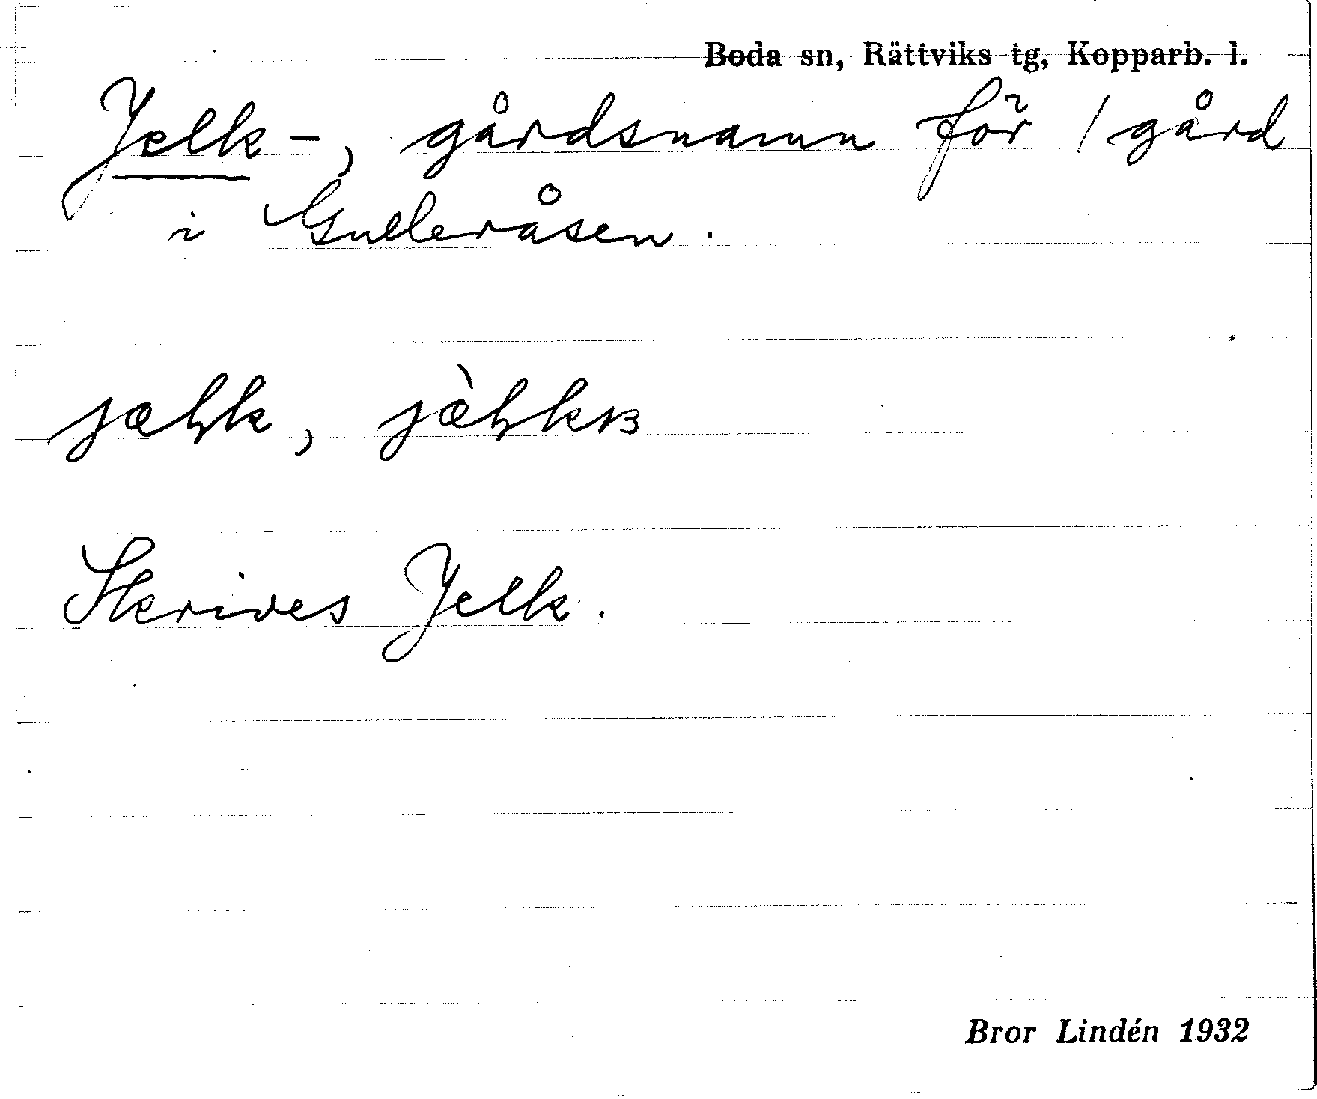 Boda sn, Rättviks tg, Kopparb. l.
Jelk-, gårdsnamn för 1 gård
i Gulleråsen.
Skrives Jelk.
Bror Lindén 1932